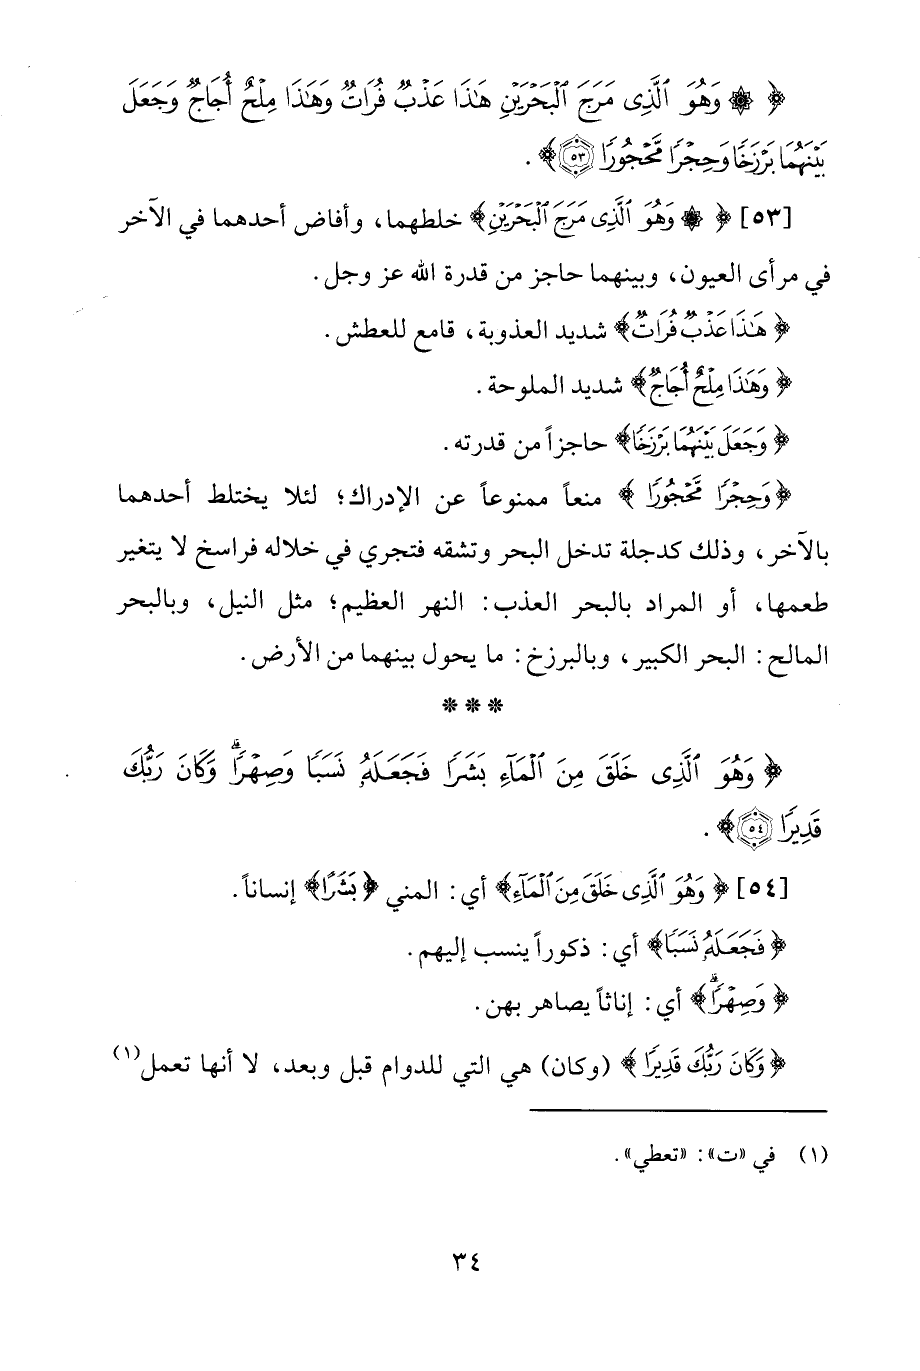 ﴿ ۞ وَهُوَ ٱلَّذِى مَرَجَ ٱلْبَحْرَيْنِ هَٰذَا عَذْبٌ فُرَاتٌ وَهَٰذَا مِلْحٌ أُجَاجٌ وَجَعَلَ
بَيْنَهُمَا بَرْزَخًا وَحِجْرًا مَّحْجُورًا ۝٥٣﴾ .
[٥٣] ﴿ ۞ وَهُوَ ٱلَّذِى مَرَجَ ٱلْبَحْرَيْنِ﴾ خلطهما، وأفاض أحدهما في الآخر
في مرأى العيون، وبينهما حاجز من قدرة الله عز وجل.
﴿ هَٰذَا عَذْبٌ فُرَاتٌ﴾ شديد العذوبة، قامع للعطش.
﴿ وَهَٰذَا مِلْحٌ أُجَاجٌ﴾ شديد الملوحة.
﴿ وَجَعَلَ بَيْنَهُمَا بَرْزَخًا﴾ حاجزاً من قدرته.
﴿وَحِجْرًا مَّحْجُورًا ﴾ منعاً ممنوعاً عن الإدراك؛ لئلا يختلط أحدهما
بالآخر، وذلك كدجلة تدخل البحر وتشقه فتجري في خلاله فراسخ لا يتغير
طعمها، أو المراد بالبحر العذب: النهر العظيم؛ مثل النيل، وبالبحر
المالح: البحر الكبير، وبالبرزخ: ما يحول بينهما من الأرض.
* * *
﴿ وَهُوَ ٱلَّذِى خَلَقَ مِنَ ٱلْمَآءِ بَشَرًا فَجَعَلَهُۥ نَسَبًا وَصِهْرًاۗ وَكَانَ رَبُّكَ
قَدِيرًا ۝٥٤﴾ .
[٥٤] ﴿ وَهُوَ ٱلَّذِى خَلَقَ مِنَ ٱلْمَآءِ﴾ أي: المني ﴿بَشَرًا﴾ إنساناً.
﴿ فَجَعَلَهُۥ نَسَبًا﴾ أي: ذكوراً ينسب إليهم.
﴿ وَصِهْرًاۗ﴾ أي: إناثاً يصاهر بهن.
﴿وَكَانَ رَبُّكَ قَدِيرًا ﴾ (وكان) هي التي للدوام قبل وبعد، لا أنها تعمل(١)
(١) في «ت»: «تعطي».
٣٤